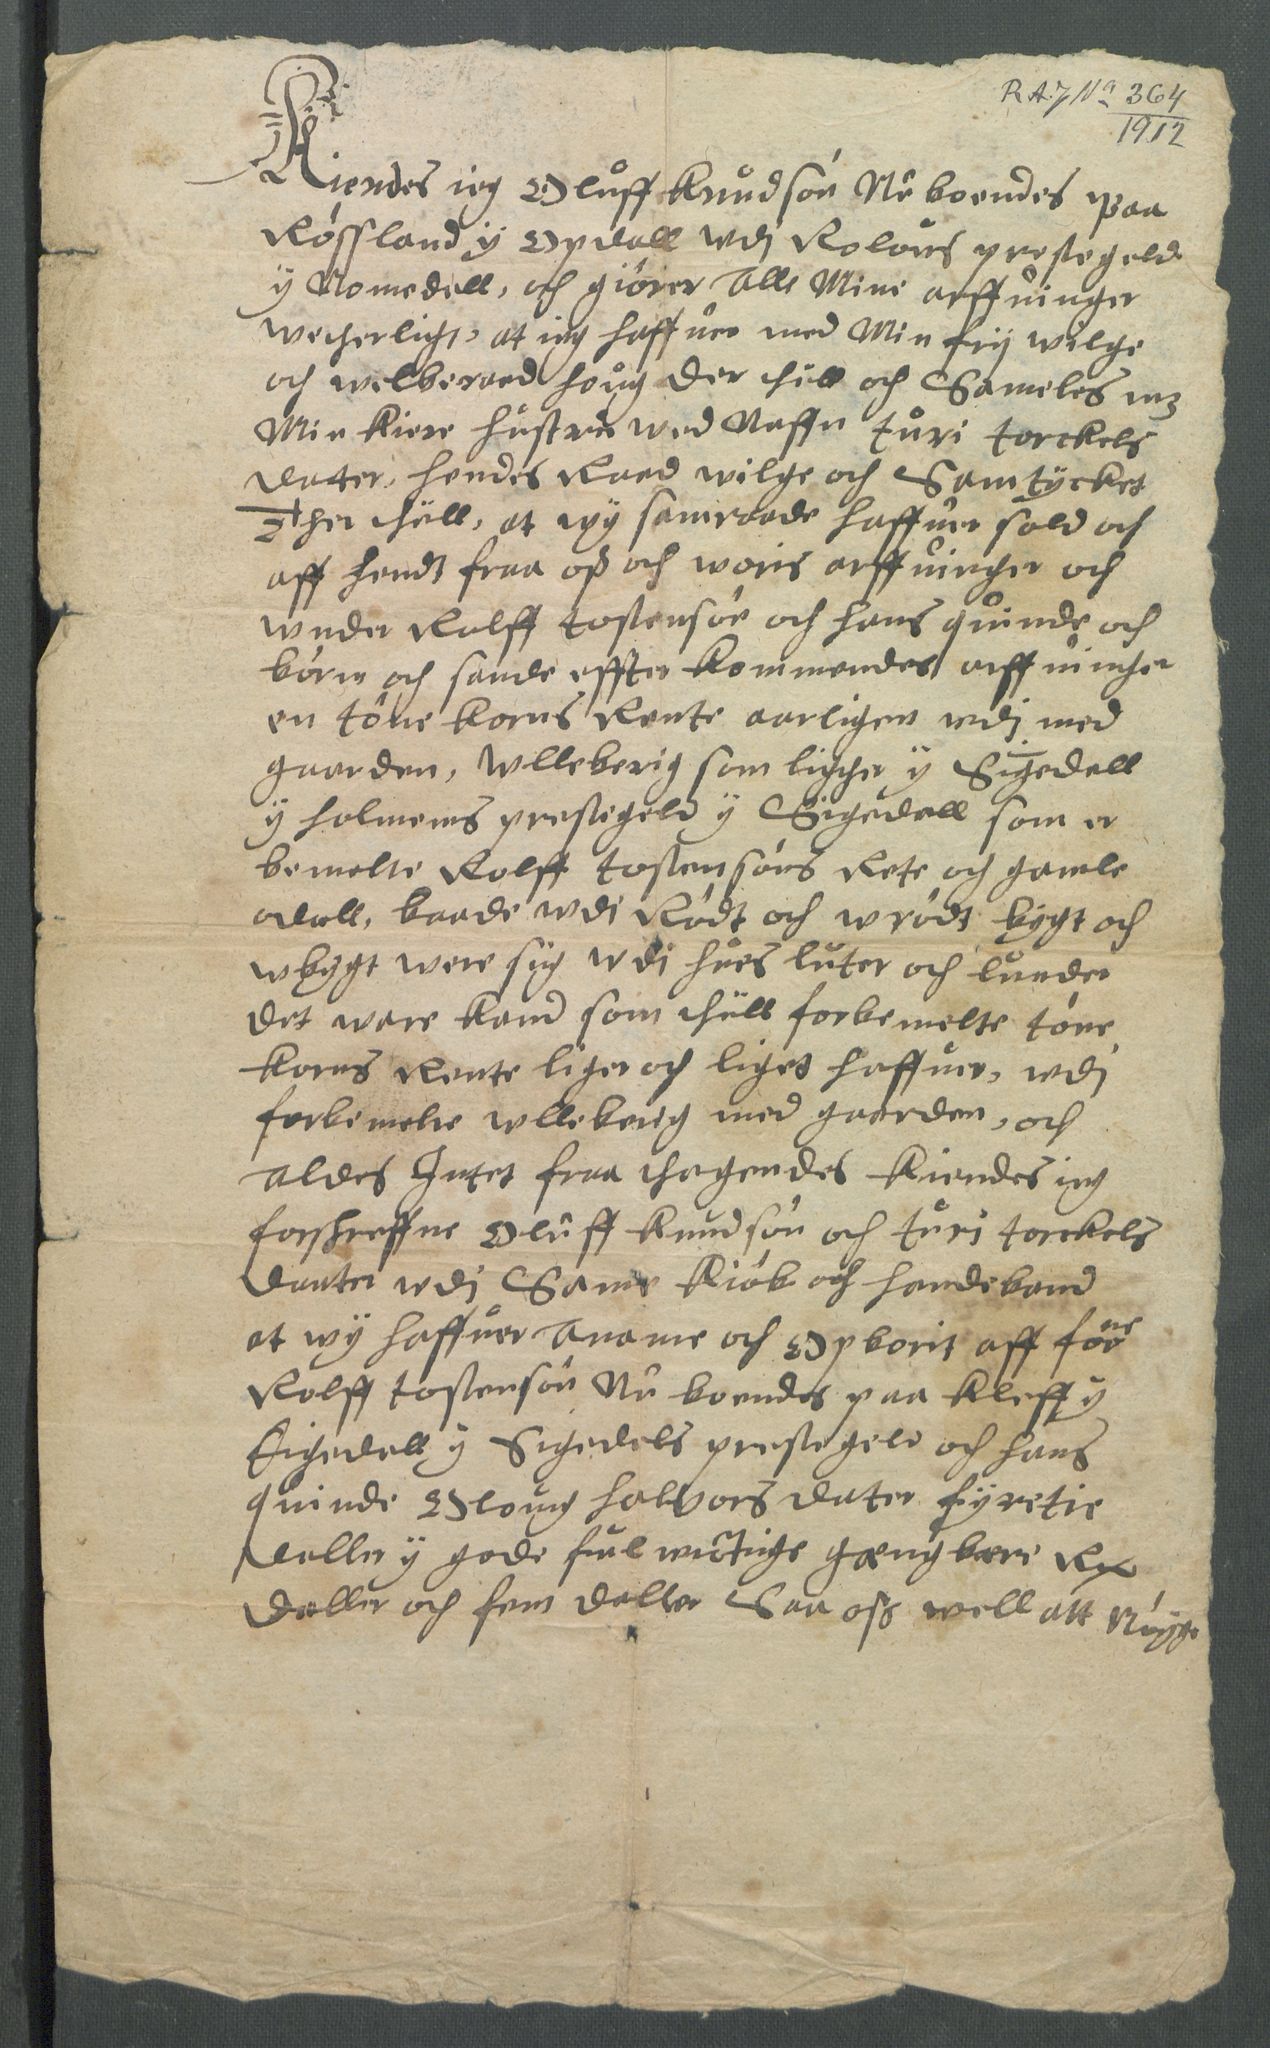 R.A. J Na 364
1912
Kiendes ieg Oluff Knudsøn Nu boendes paa
Røssland y Opdall wdj Rolous prestegeld
y Nomedell, och giører alle Mine arffuinger
wetherligt, at ieg haffuer med Min frij wilge
och welberaad houg der thill och Sameles mz
Min kiere hustru wed Naffn turi torckels
datter, hendes Raad wilge och Samtÿcket
Ther thill, at wÿ samraade haffuer sold och
aff hendt fraa oß och woris arffuinger och
wnder Rolff tostensøn och hans quinde och
børn och sande effter kommendes arffuinger
en tøne korns Rente aarligen wdj med
gaarden, wlleberig som ligger ÿ Sigedall
ÿ holmens prestegeld ÿ Sigedall som er
bemelte Rolff tostensøns Rete och gamle
odall, baade wdi Rødt och wrødt bygt och
wbygt were sig wdi hues luter och lunder
det were kand som thill forbemelte tøne
korns Rente liger och liget haffuer, wdj
forbemelte wlleberig med gaarden, och
aldes Intet fraa thagendes kiendes ieg
forschreffne Oluff Knudsøn och turi torckels
daatter wdj Same kiøb och handeband
at wÿ haffuer Aname och Opborit aff forne
Rolff tostensøn Nu boendes paa kleff y
Sigedall ÿ Sigedals prestegeld och hans
quinde Oloug halvors dater fÿretie
daller ÿ gode ful wictige gengbere Rix
daller och fem daller Saa oss well att Nøyge